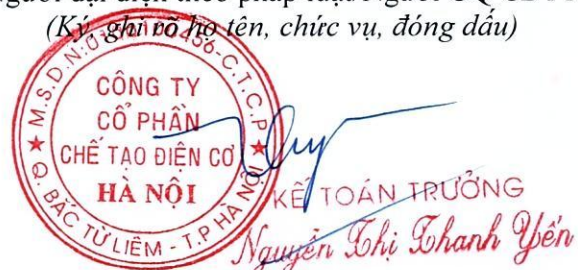 (Ký, ghi rõ họ tên, chức vụ, đóng dấu)
CÔNG TY
CỔ PHẦN
CHẾ TẠO ĐIỆN CƠ
HÀ NỘI
Q. BẮC TỪ LIÊM - T.P HÀ NỘI
KẾ TOÁN TRƯỞNG
Nguyễn Thị Thanh Yến